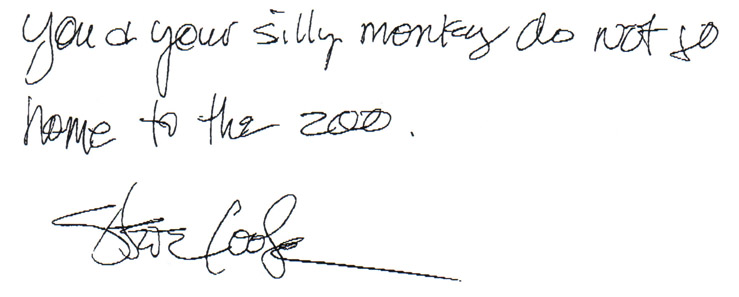 you & your silly monkey do not go
home to the zoo.
Steve